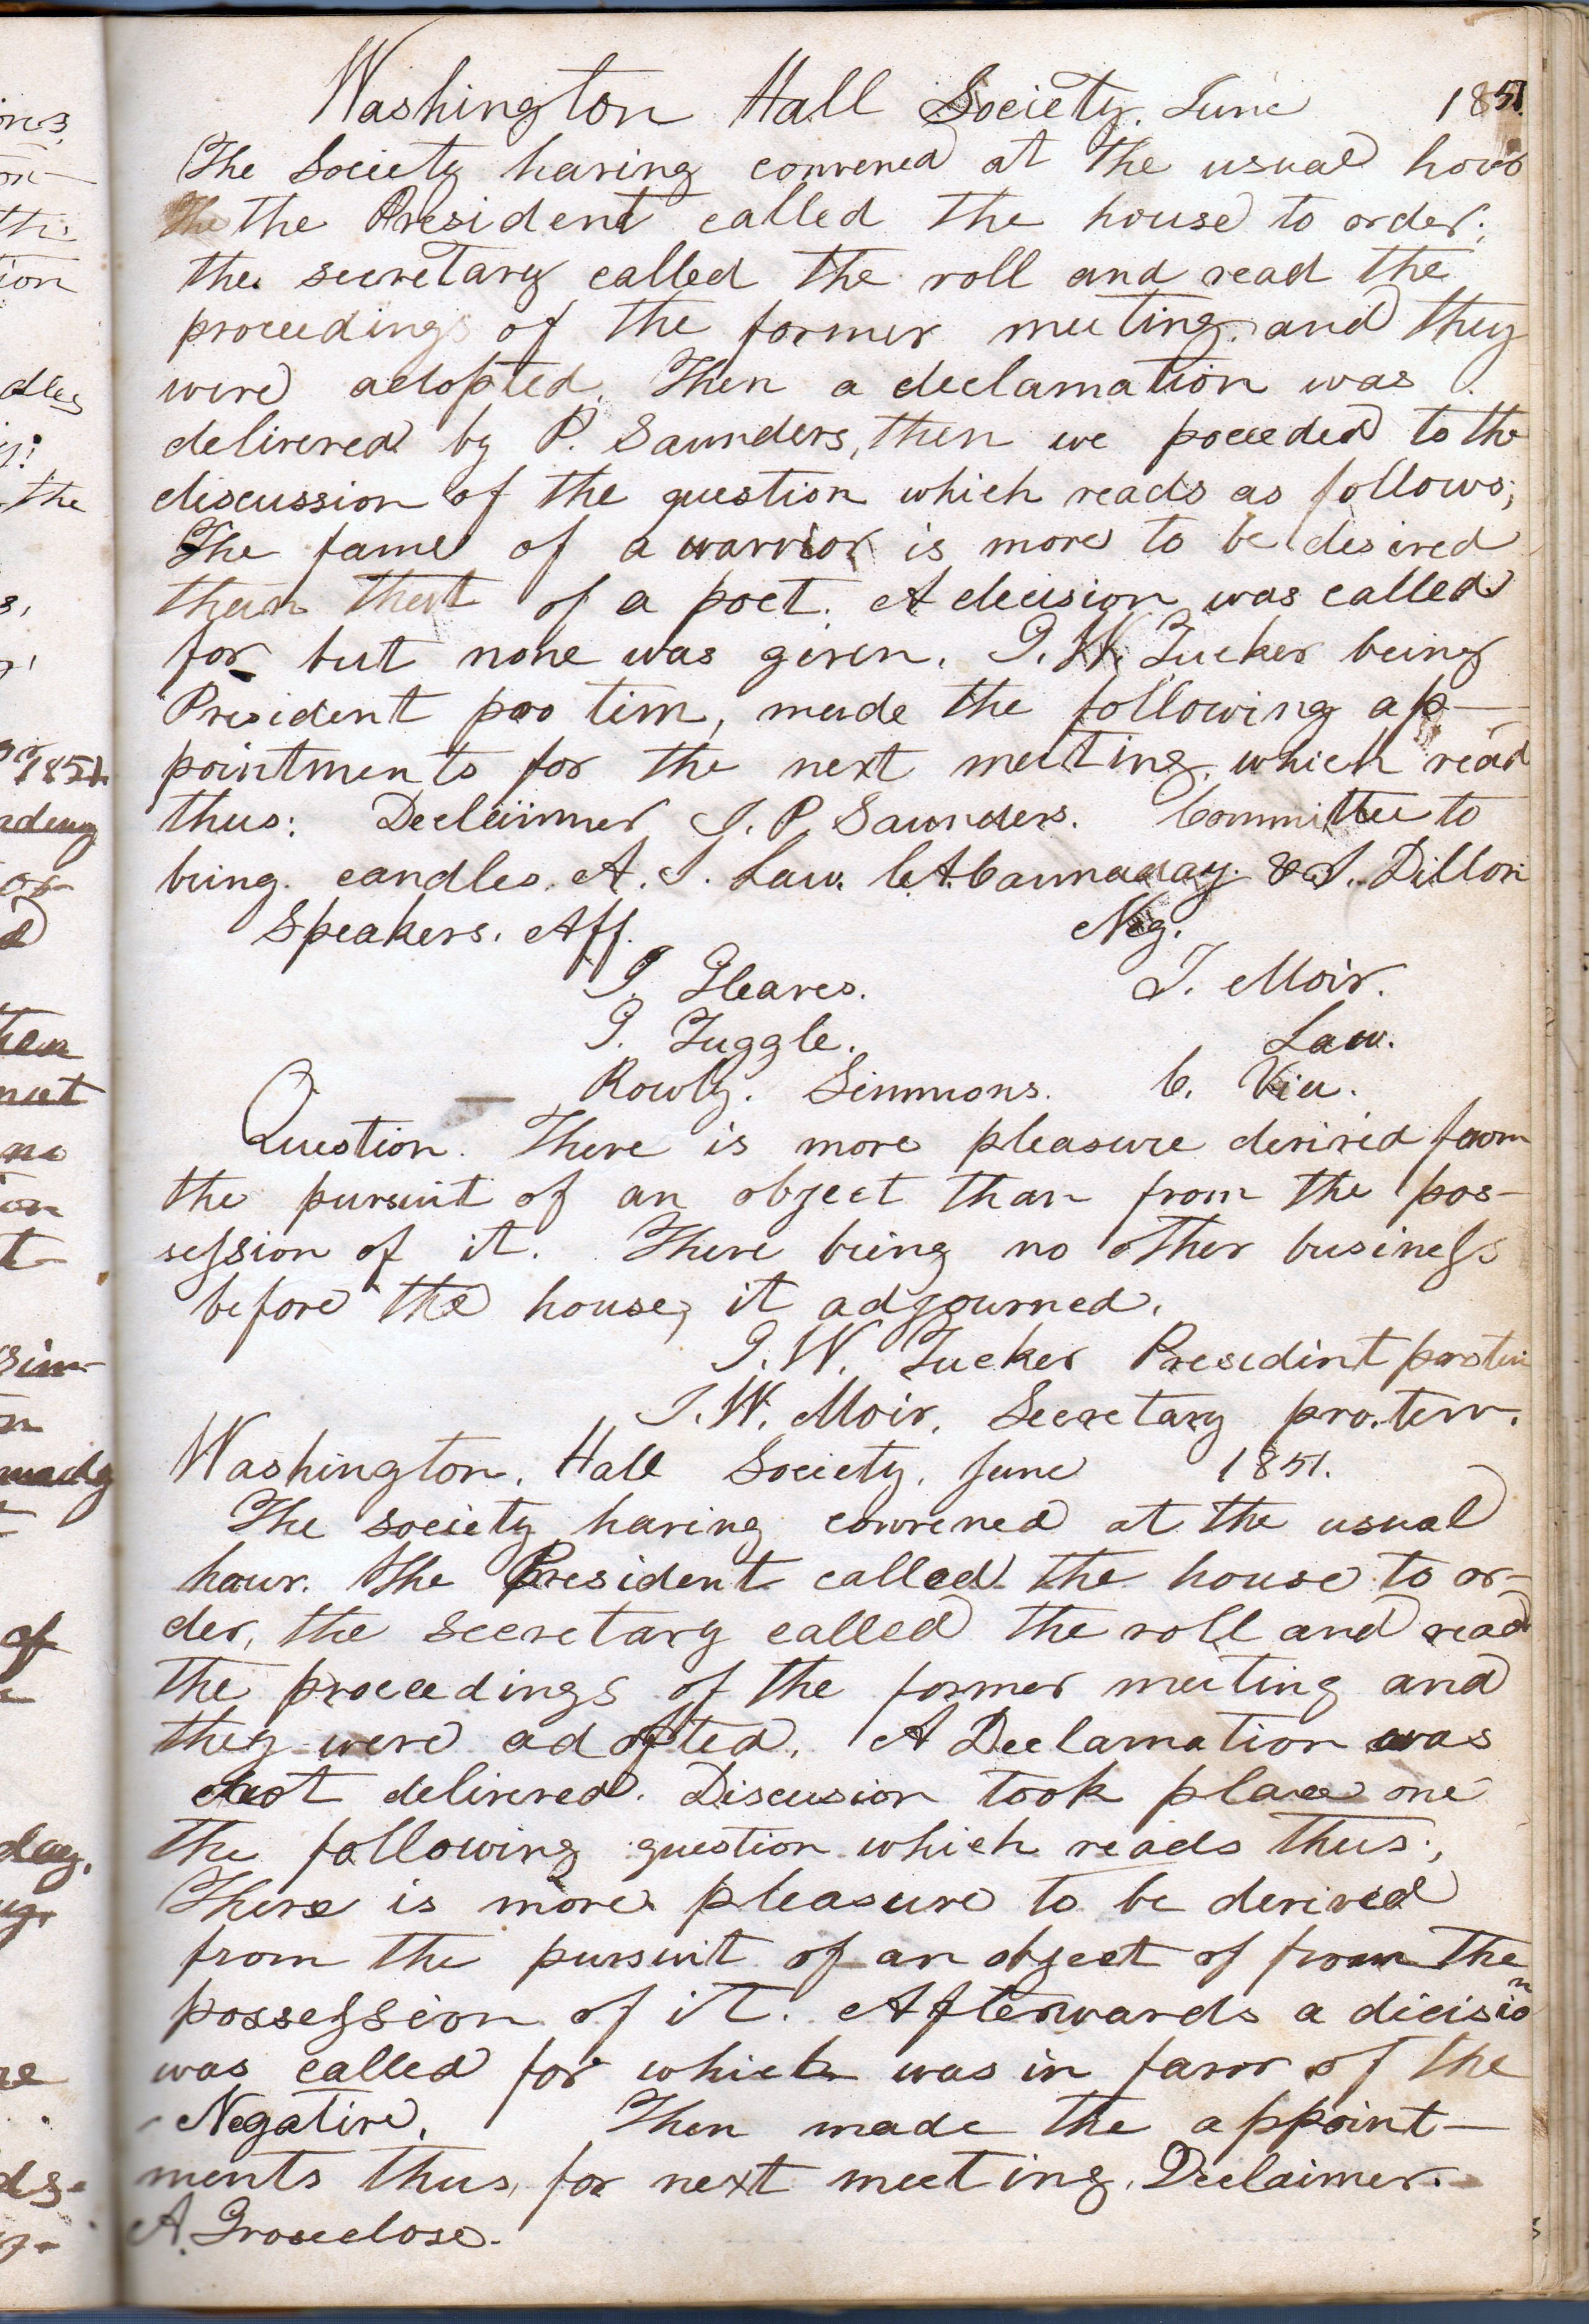 Washington Hall Society. June 1851.
The Society having convened at the usual hour
The the President called the house to order;
the secretary called the roll and read the
proceedings of the former meeting, and they
were adopted. Then a declamation was
delivered by P. Saunders, then we poceeded to the
discussion of the question which reads as follows;
The fame of a warrior is more to be desired
than that of a poet. A decision was called
for but none was given. G. W. Tucker being
President pro tim, made the following ap-
pointments for the next meeting, which read
thus: Declaimer J. P. Saunders. Committee to
bring candles. A. J. Law. C. A. Cannaday. & J. Dillon
Speakers. Aff. Neg.
G. Gleaves. T. Moir.
G. Tuggle. Law.
Rowly. Simmons. C. Via.
Question. There is more pleasure derived from
the pursuit of an object than from the pos-
session of it. There being no other business
before the house, it adjourned.
G. W. Tucker Presedint protem
J. W. Moir. Secretary pro. tem.
Washington. Hall Society. June 1851.
The society having convened at the usual
hour. the President called the house to or-
der, the secretary called the roll and read
the proceedings of the former meeting and
they were adopted. A Declamation was
not delivered. Discusion took place one
the following question which reads thus;
There is more pleasure to be derived
from the pursuit of an object of from the
possession of it. Afterwards a dicision
was called for which was in favor of the
Negative. Then made the appoint-
ments thus, for next meeting. Declaimer.
A. Groseclose.